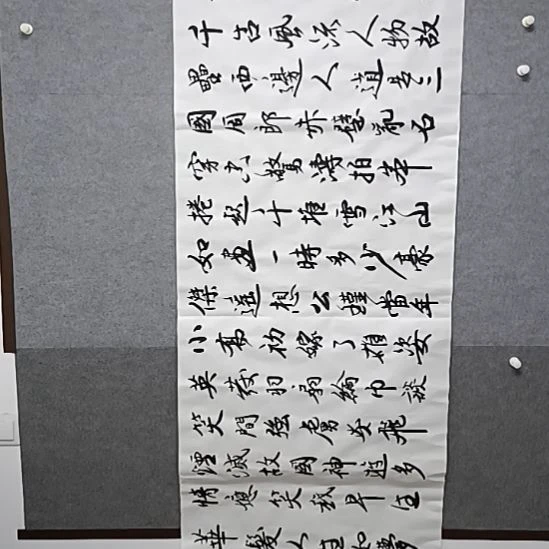 千古風流人物故
壘西邊人道是三
國周郎赤壁亂石
穿空驚濤拍岸
捲起千堆雪江山
如畫一時多少豪
傑遙想公瑾當年
小喬初嫁了雄姿
英發羽扇綸巾談
笑間強虜灰飛
煙滅故國神遊多
情應笑我早生
華髮人生如夢